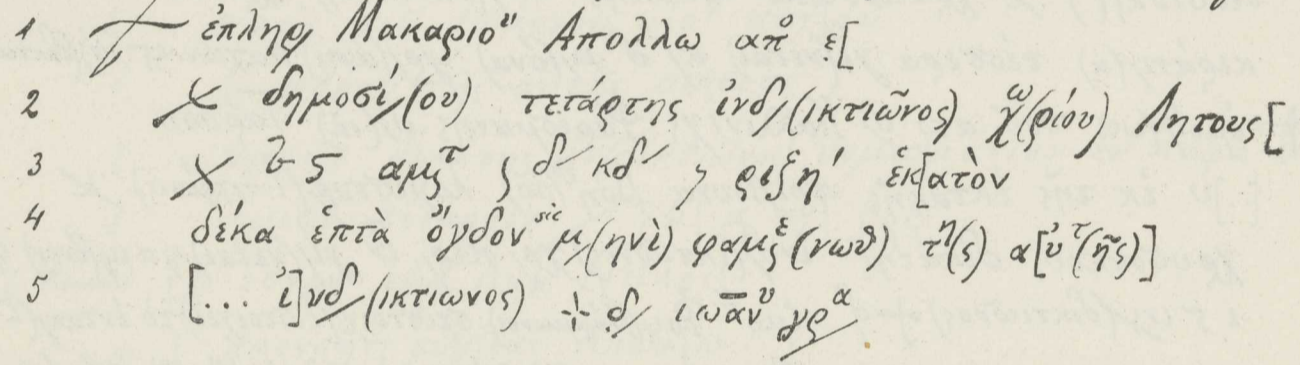 1 ἐπληρ Μακαριοʋ Απολλω απο ε[
2 δημοσί/(ου) τετάρτης ἰνδ/(ικτιῶνος) χω(ρίου) Λητους[
3 αμτ δ κδ ἑκ[ατὸν
4 δέκα ἑπτὰ ὄγδον sic μ/(ηνὶ) φαμε(νωθ) τη(ς) α[ὐτ(ῆς)]
5 [... ἰ]νδ/(ικτιωνος) ιωαν γρα